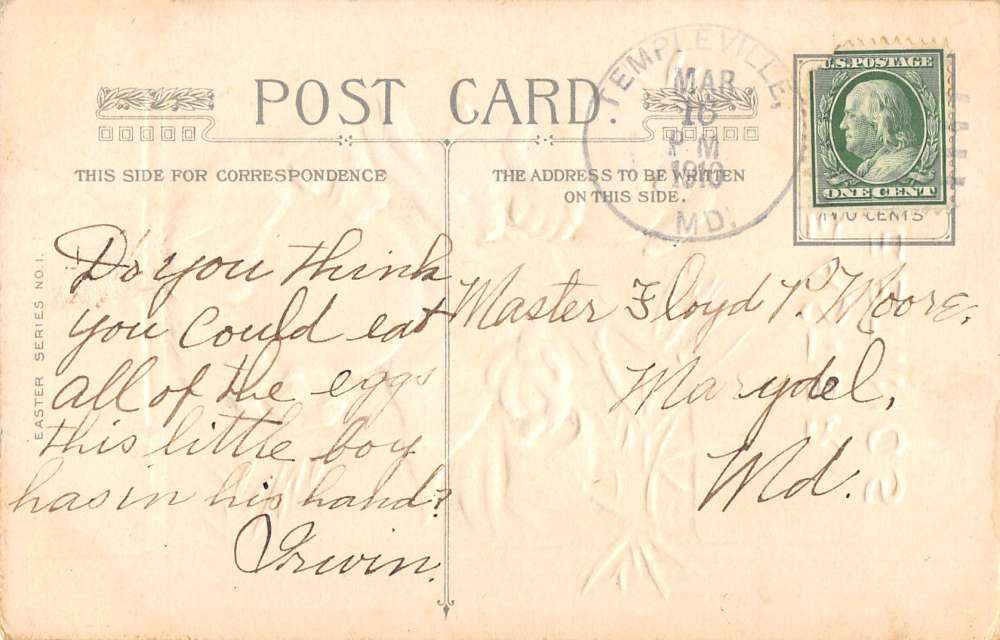 POST CARD.
THIS SIDE FOR CORRESPONDENCE
THE ADDRESS TO BE WRITTEN
ON THIS SIDE.
TEMPLEVILLE,
MAR
P M
1910
MD.
U.S. POSTAGE
ONE CENT
TWO CENTS
EASTER SERIES NO. 1.
Do you think
you could eat
all of the eggs
this little boy
has in his hand?
Irwin.
Master Floyd P. Moore,
Marydel,
Md.